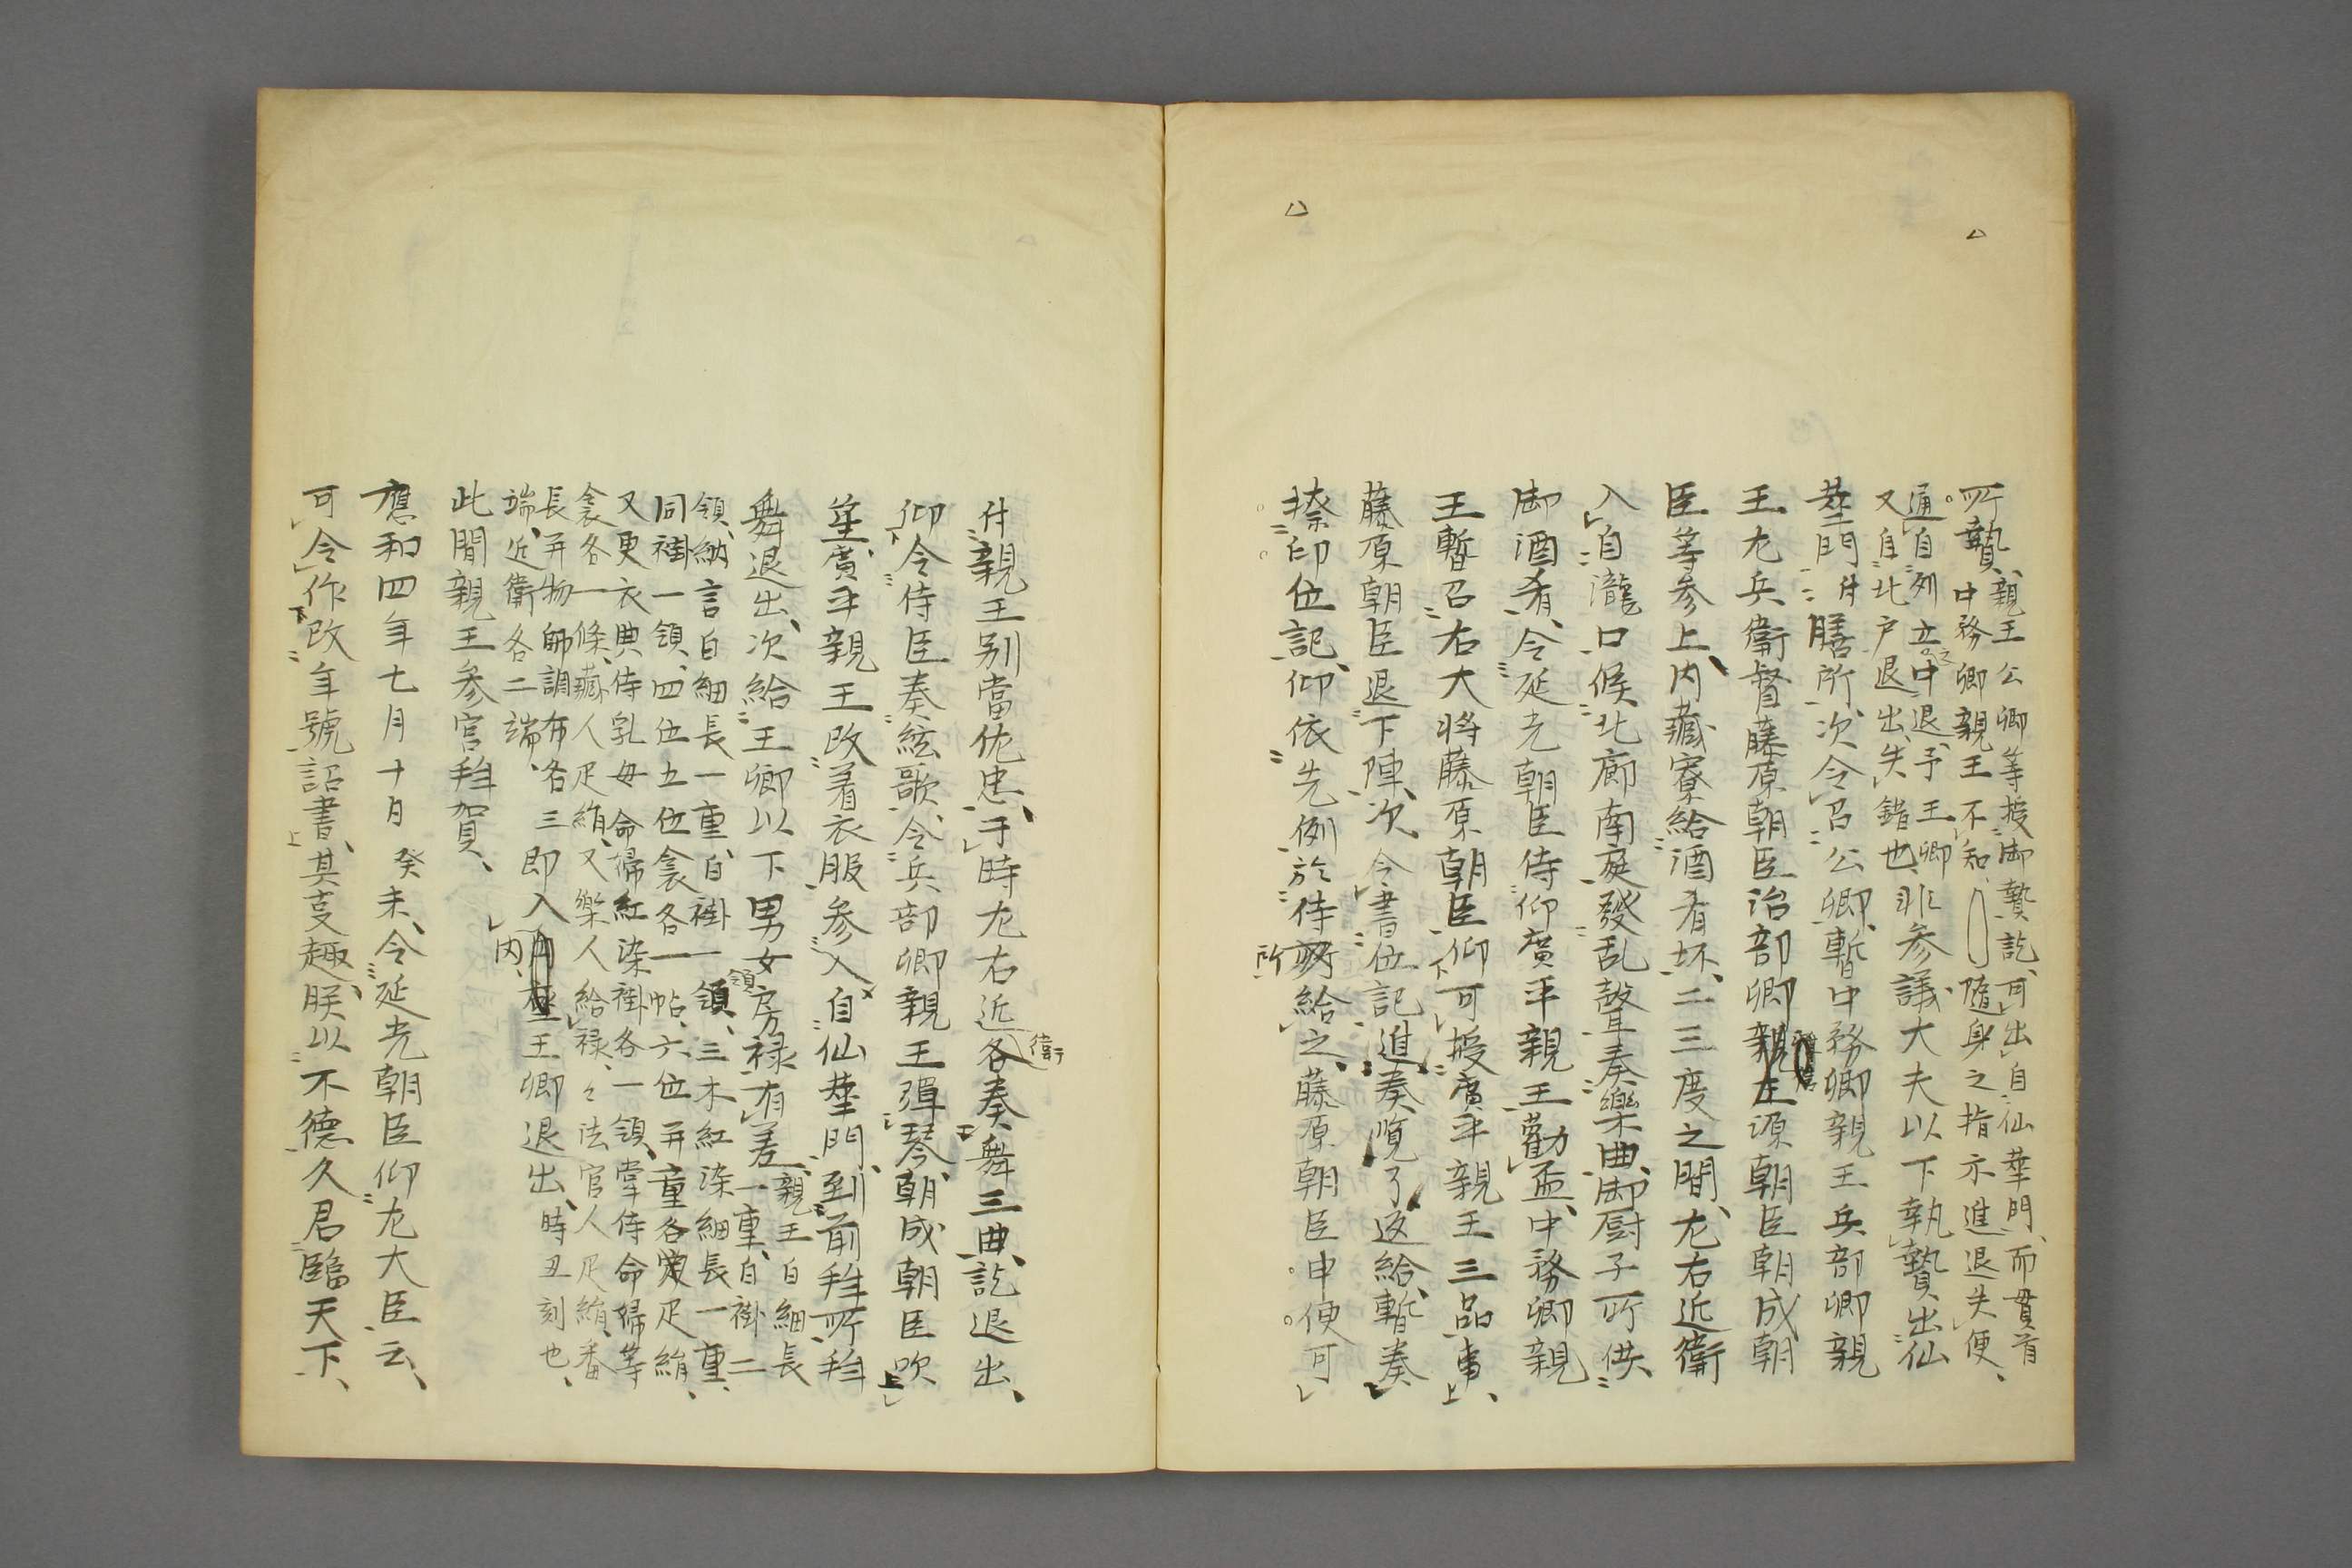 所贄、親王公卿等授御贄訖、可出自仙華門、而貫首
中務卿親王不知、隨身之指示進退失便、
通自列立之中退、予王卿
又自北戸退出、失錯也、非参議大夫以下執贄出仙
華門付膳所、次令召公卿、暫中務卿親王兵部卿親
王九兵衛督藤原朝臣治部卿源朝臣朝成朝
臣等参上、内蔵寮給酒肴坏、二三度之間、左右近衛
入自瀧口候北廊南庭發乱聲奏樂曲、御厨子所供
御酒肴、令延光朝臣侍仰廣平親王勸盃、中務卿親
王暫召右大将藤原朝臣仰可授廣平親王三品事、
藤原朝臣退下陣、次、令書位記進奏覧了返給、暫奏
捺印位記、仰依先例於侍所給之、藤原朝臣申便可
付親王別當佐忠、于時左右近衛各奏舞三曲、訖退出、
仰令侍臣奏絃歌、令兵部卿親王弾琴、朝成朝臣吹
笙、廣平親王改着衣服参入、自仙華門、到前拜所拜
舞退出、次給王卿以下男女房禄有差、親王白細長
一重、白褂二
領、納言白細長一重、白褂一領、三木紅染細長一重、
同褂一領、四位五位衾各一帖、六位并童各疋絹、
又更衣典侍乳母命婦紅染褂各一領、掌侍命婦等
衾各一條、蔵人疋絹、又樂人給禄、々法官人疋絹、番
長并物師調布各三
端、近衛各二端、即入内、王卿退出、時丑刻也、
此間親王参宮拜賀、
應和四年七月十日癸未、令延光朝臣仰左大臣云、
可令作改年號詔書、其㕝趣、朕以不德久君臨天下、